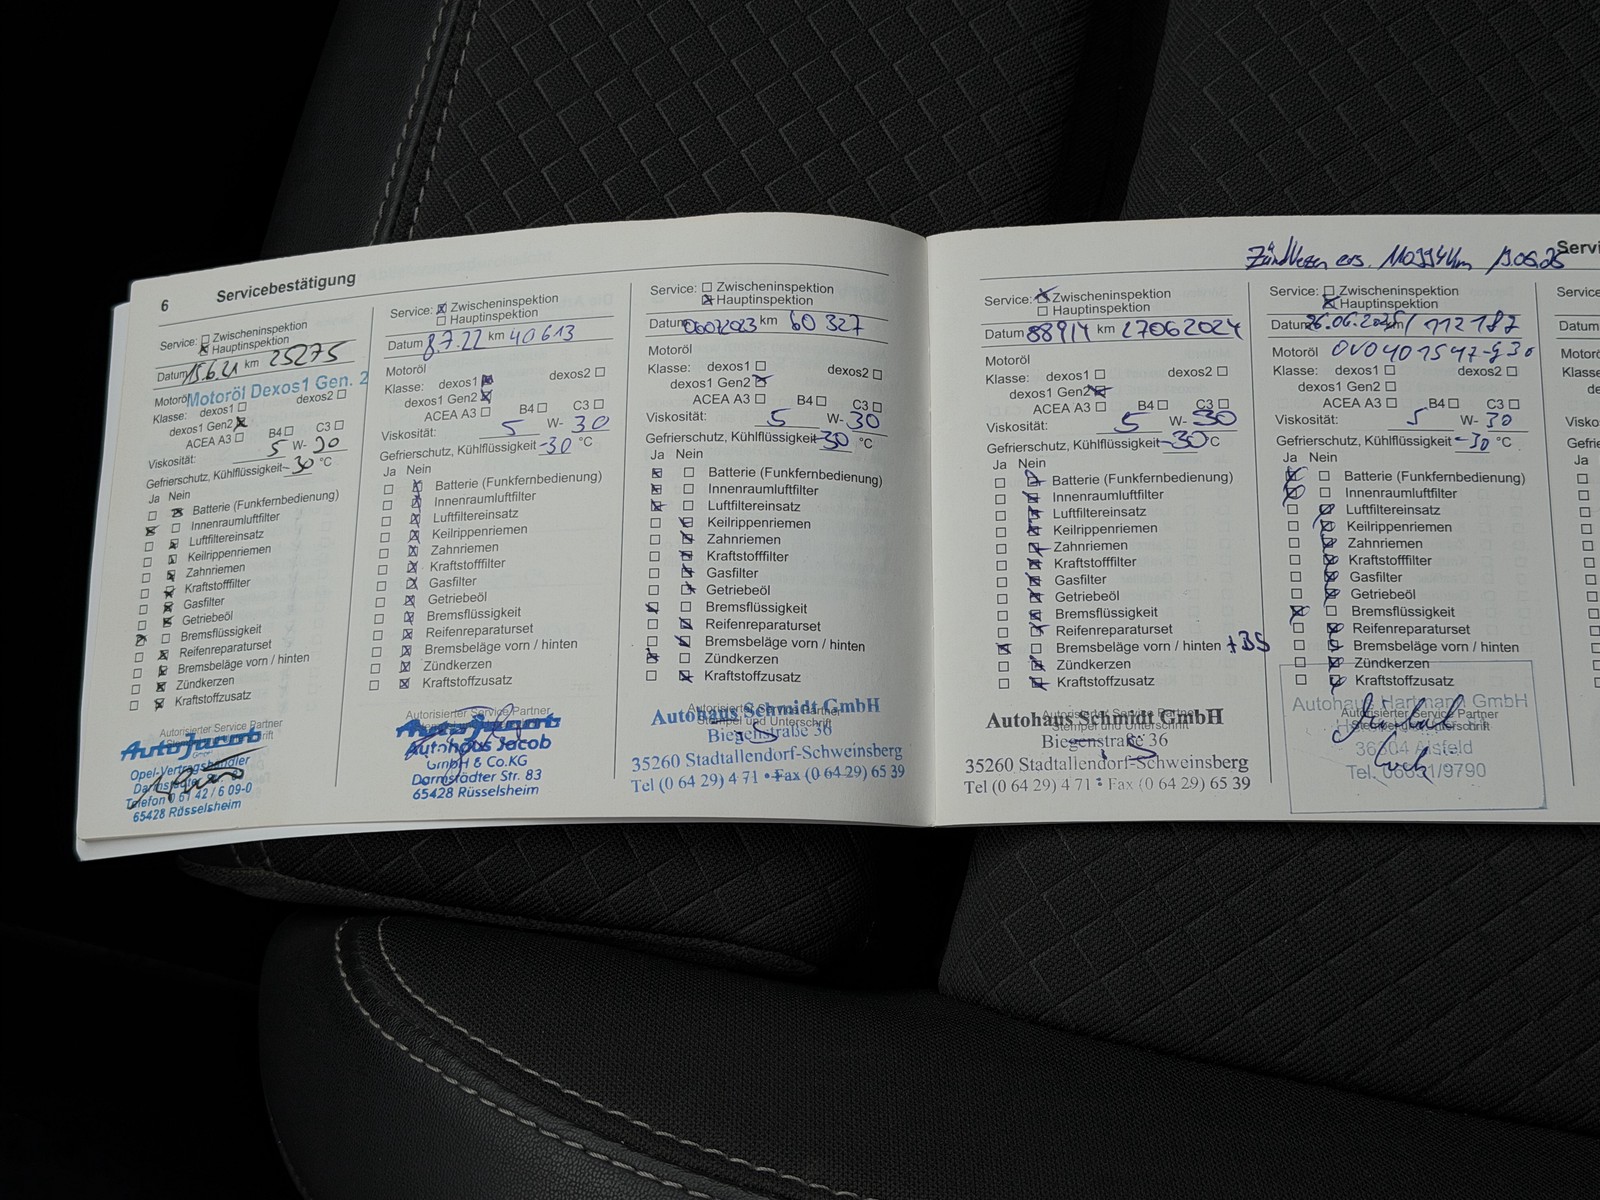 6 Servicebestätigung
Service: ☐ Zwischeninspektion
☒ Hauptinspektion
Datum 15.6.21 km 25275
Motoröl Motoröl Dexos1 Gen. 2
Klasse: dexos1 ☐ dexos2 ☐
dexos1 Gen2 ☒
ACEA A3 ☐ B4 ☐ C3 ☐
Viskosität: 5 W- 30
Gefrierschutz, Kühlflüssigkeit -30 °C
Ja Nein
☐ ☒ Batterie (Funkfernbedienung)
☒ ☐ Innenraumluftfilter
☐ ☒ Luftfiltereinsatz
☐ ☒ Keilrippenriemen
☐ ☒ Zahnriemen
☐ ☒ Kraftstofffilter
☐ ☒ Gasfilter
☐ ☒ Getriebeöl
☒ ☐ Bremsflüssigkeit
☐ ☒ Reifenreparaturset
☐ ☒ Bremsbeläge vorn / hinten
☐ ☒ Zündkerzen
☐ ☒ Kraftstoffzusatz
Autorisierter Service Partner
AutoJacob
Opel-Vertragshändler
Darmstädter Str.
Telefon 0 61 42 / 6 09-0
65428 Rüsselsheim
Service: ☒ Zwischeninspektion
☐ Hauptinspektion
Datum 8.7.22 km 40613
Motoröl
Klasse: dexos1 ☒ dexos2 ☐
dexos1 Gen2 ☒
ACEA A3 ☐ B4 ☐ C3 ☐
Viskosität: 5 W- 30
Gefrierschutz, Kühlflüssigkeit -30 °C
Ja Nein
☐ ☒ Batterie (Funkfernbedienung)
☐ ☒ Innenraumluftfilter
☐ ☒ Luftfiltereinsatz
☐ ☒ Keilrippenriemen
☐ ☒ Zahnriemen
☐ ☒ Kraftstofffilter
☐ ☒ Gasfilter
☐ ☒ Getriebeöl
☐ ☒ Bremsflüssigkeit
☐ ☒ Reifenreparaturset
☐ ☒ Bremsbeläge vorn / hinten
☐ ☒ Zündkerzen
☐ ☒ Kraftstoffzusatz
Autorisierter Service Partner
AutoJacob
Autohaus Jacob
GmbH & Co.KG
Darmstädter Str. 83
65428 Rüsselsheim
Service: ☐ Zwischeninspektion
☒ Hauptinspektion
Datum 06072023 km 60 327
Motoröl
Klasse: dexos1 ☐ dexos2 ☐
dexos1 Gen2 ☒
ACEA A3 ☐ B4 ☐ C3 ☐
Viskosität: 5 W- 30
Gefrierschutz, Kühlflüssigkeit -30 °C
Ja Nein
☒ ☐ Batterie (Funkfernbedienung)
☒ ☐ Innenraumluftfilter
☒ ☐ Luftfiltereinsatz
☐ ☒ Keilrippenriemen
☐ ☒ Zahnriemen
☐ ☒ Kraftstofffilter
☐ ☒ Gasfilter
☐ ☒ Getriebeöl
☒ ☐ Bremsflüssigkeit
☐ ☒ Reifenreparaturset
☐ ☒ Bremsbeläge vorn / hinten
☒ ☐ Zündkerzen
☐ ☒ Kraftstoffzusatz
Autorisierter Service Partner
Autohaus Schmidt GmbH
Stempel und Unterschrift
Biegenstraße 36
35260 Stadtallendorf-Schweinsberg
Tel (0 64 29) 4 71 • Fax (0 64 29) 65 39
Zündkerzen ers. 110394km
Servi
Service: ☒ Zwischeninspektion
☐ Hauptinspektion
Datum 88914 km 27062024
Motoröl
Klasse: dexos1 ☐ dexos2 ☐
dexos1 Gen2 ☒
ACEA A3 ☐ B4 ☐ C3 ☐
Viskosität: 5 W- 30
Gefrierschutz, Kühlflüssigkeit -30 °C
Ja Nein
☐ ☒ Batterie (Funkfernbedienung)
☐ ☒ Innenraumluftfilter
☐ ☒ Luftfiltereinsatz
☐ ☒ Keilrippenriemen
☐ ☒ Zahnriemen
☐ ☒ Kraftstofffilter
☐ ☒ Gasfilter
☐ ☒ Getriebeöl
☐ ☒ Bremsflüssigkeit
☐ ☒ Reifenreparaturset
☒ ☐ Bremsbeläge vorn / hinten + BS
☐ ☒ Zündkerzen
☐ ☒ Kraftstoffzusatz
Autorisierter Service Partner
Autohaus Schmidt GmbH
Stempel und Unterschrift
Biegenstraße 36
35260 Stadtallendorf-Schweinsberg
Tel (0 64 29) 4 71 • Fax (0 64 29) 65 39
Service: ☐ Zwischeninspektion
☒ Hauptinspektion
Datum 26.06.2025 km 112187
Motoröl OV0401547-G30
Klasse: dexos1 ☐ dexos2 ☐
dexos1 Gen2 ☐
ACEA A3 ☐ B4 ☐ C3 ☐
Viskosität: 5 W- 30
Gefrierschutz, Kühlflüssigkeit -30 °C
Ja Nein
☒ ☐ Batterie (Funkfernbedienung)
☒ ☐ Innenraumluftfilter
☐ ☒ Luftfiltereinsatz
☐ ☒ Keilrippenriemen
☐ ☒ Zahnriemen
☐ ☒ Kraftstofffilter
☐ ☒ Gasfilter
☐ ☒ Getriebeöl
☒ ☐ Bremsflüssigkeit
☐ ☒ Reifenreparaturset
☐ ☒ Bremsbeläge vorn / hinten
☐ ☒ Zündkerzen
☐ ☒ Kraftstoffzusatz
Autohaus Hartmann GmbH
Autorisierter Service Partner
36304 Alsfeld
Tel. 06631/9790
Service
Datum
Motorö
Klasse
Viskos
Gefrie
Ja